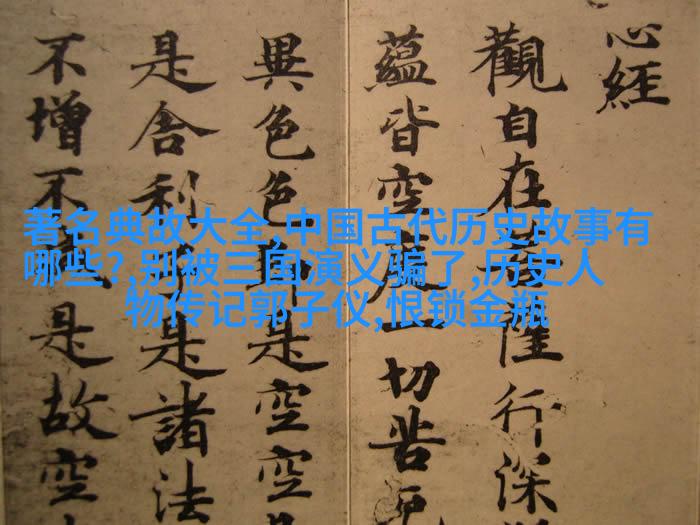 著名典故大全,中国古代历史故事有
哪些?,别被三国演义骗了,历史人
物传记郭子仪,恨锁金瓶
心經
觀自在薩行深
蘊皆空度一切苦厄
異色色即是空空
是舍利子是諸法
不增不是故空